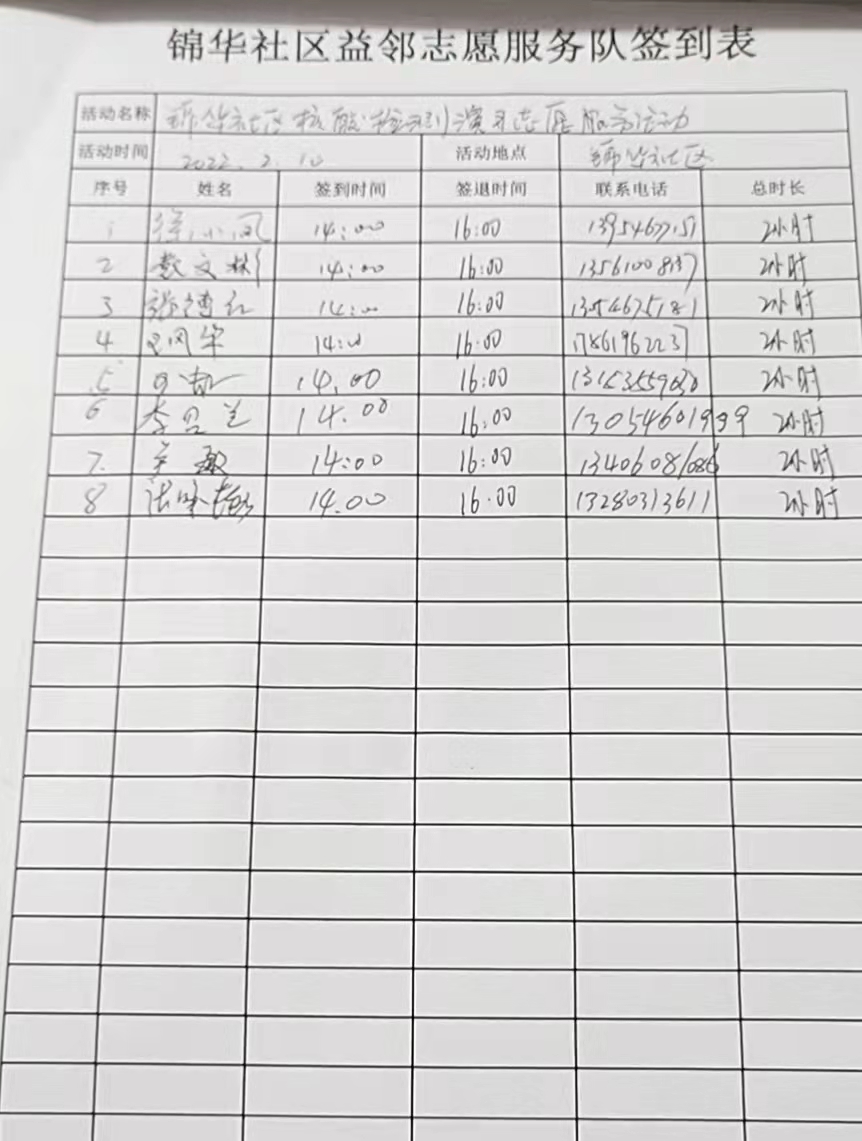 锦华社区益邻志愿服务队签到表
活动名称 锦华社区核酸检测演习志愿服务活动
活动时间 2022.2.10 活动地点 锦华社区
序号 姓名 签到时间 签退时间 联系电话 总时长
1 徐小凤 14:00 16:00 2小时
2 14:00 16:00 2小时
3 14:00 16:00 2小时
4 14:00 16:00 17861962237 2小时
5 14.00 16:00 2小时
6 14.00 16:00 13054601999 2小时
7. 14:00 16:00 13406081086 2小时
8 14.00 16.00 13280313611 2小时